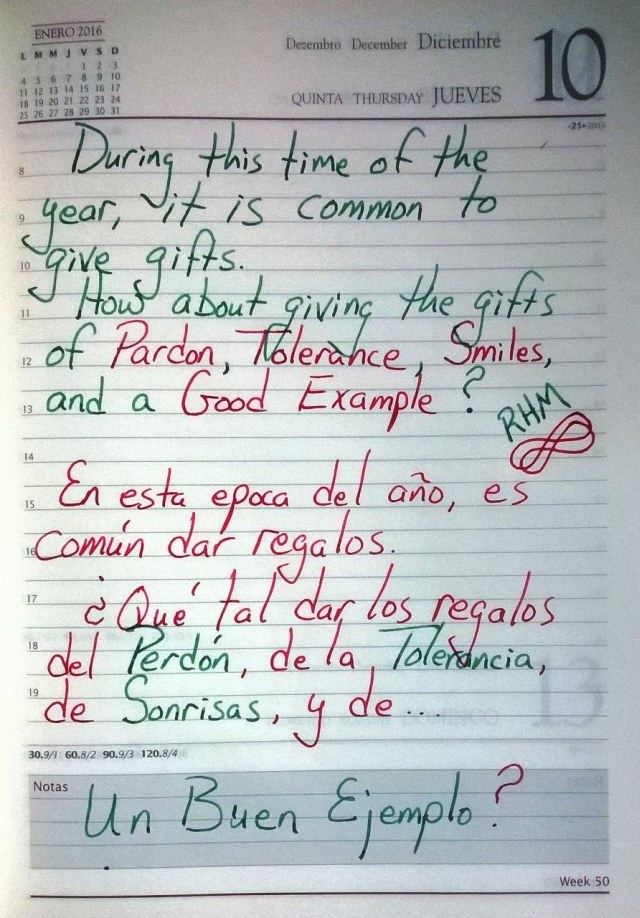 ENERO 2016
L M M J V S D
1 2 3
4 5 6 7 8 9 10
11 12 13 14 15 16 17
18 19 20 21 22 23 24
25 26 27 28 29 30 31
Dezembro December Diciembre
QUINTA THURSDAY JUEVES
10
8 During this time of the
9 year, it is common to
10 give gifts.
11 How about giving the gifts
12 of Pardon, Tolerance, Smiles,
13 and a Good Example?
RHM
14
15 En esta epoca del año, es
16 común dar regalos.
17 ¿Qué tal dar los regalos
18 del Perdón, de la Tolerancia,
19 de Sonrisas, y de...
30.9/1 60.8/2 90.9/3 120.8/4
Notas
Un Buen Ejemplo?
Week 50